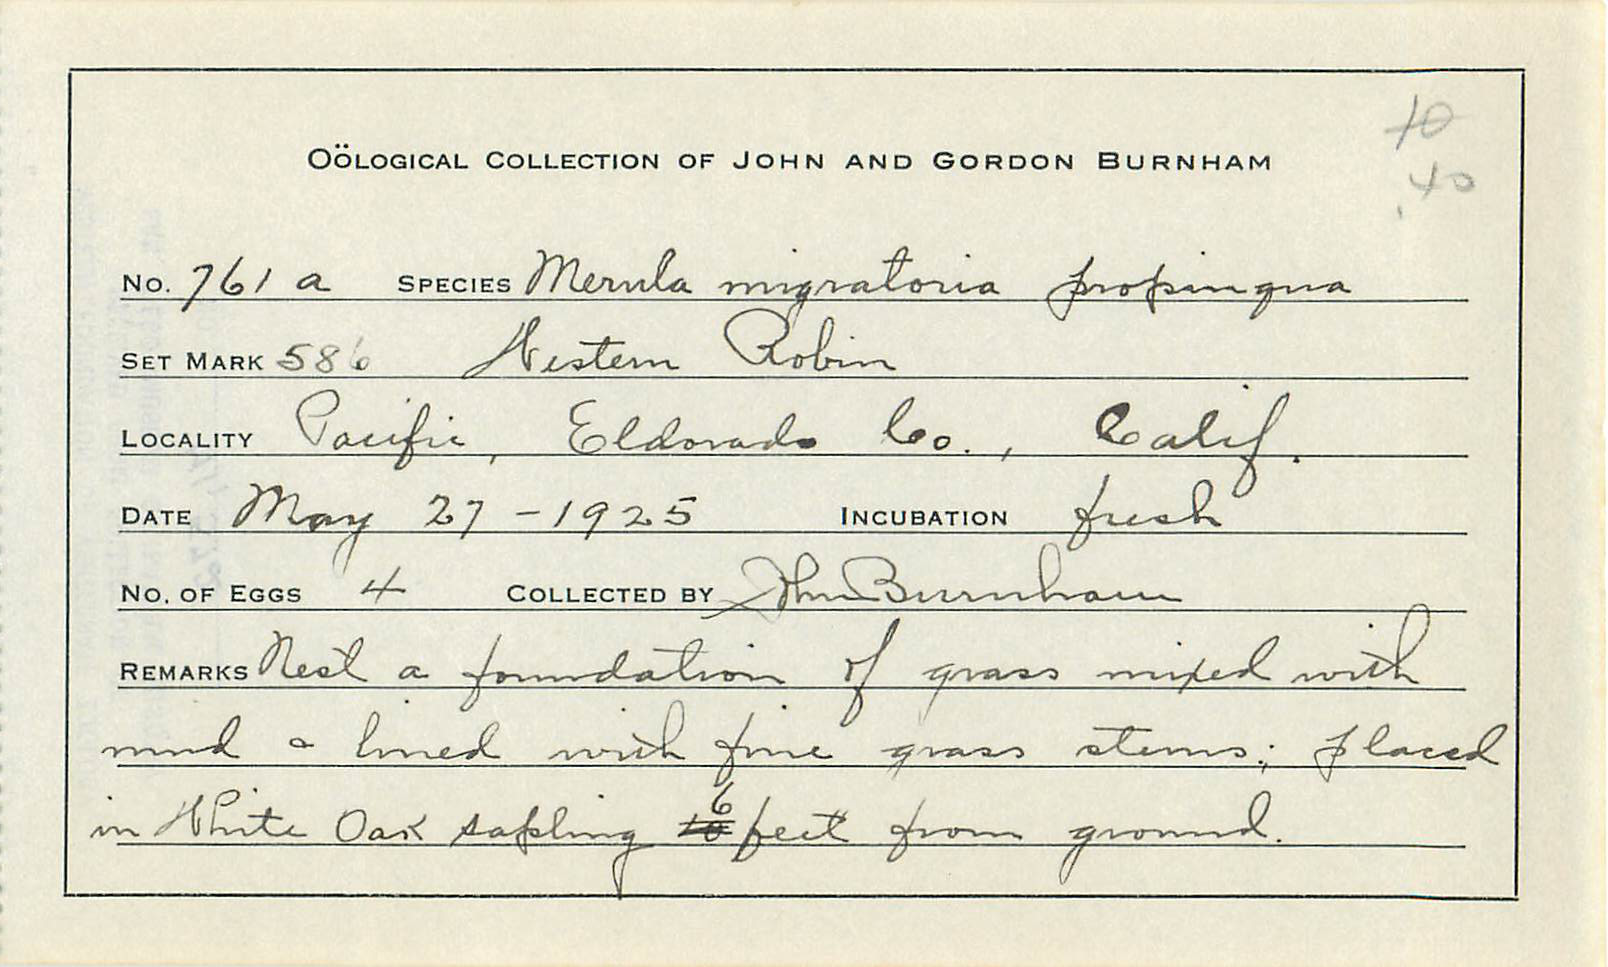 OÖLOGICAL COLLECTION OF JOHN AND GORDON BURNHAM
10
.40
NO. 761 a SPECIES Merula migratoria propinqua
SET MARK 586 Western Robin
LOCALITY Pacific, Eldorado Co., Calif.
DATE May 27 - 1925 INCUBATION fresh
NO. OF EGGS 4 COLLECTED BY John Burnham
REMARKS Nest a foundation of grass mixed with
mud & lined with fine grass stems; placed
in White Oak sapling 6 feet from ground.